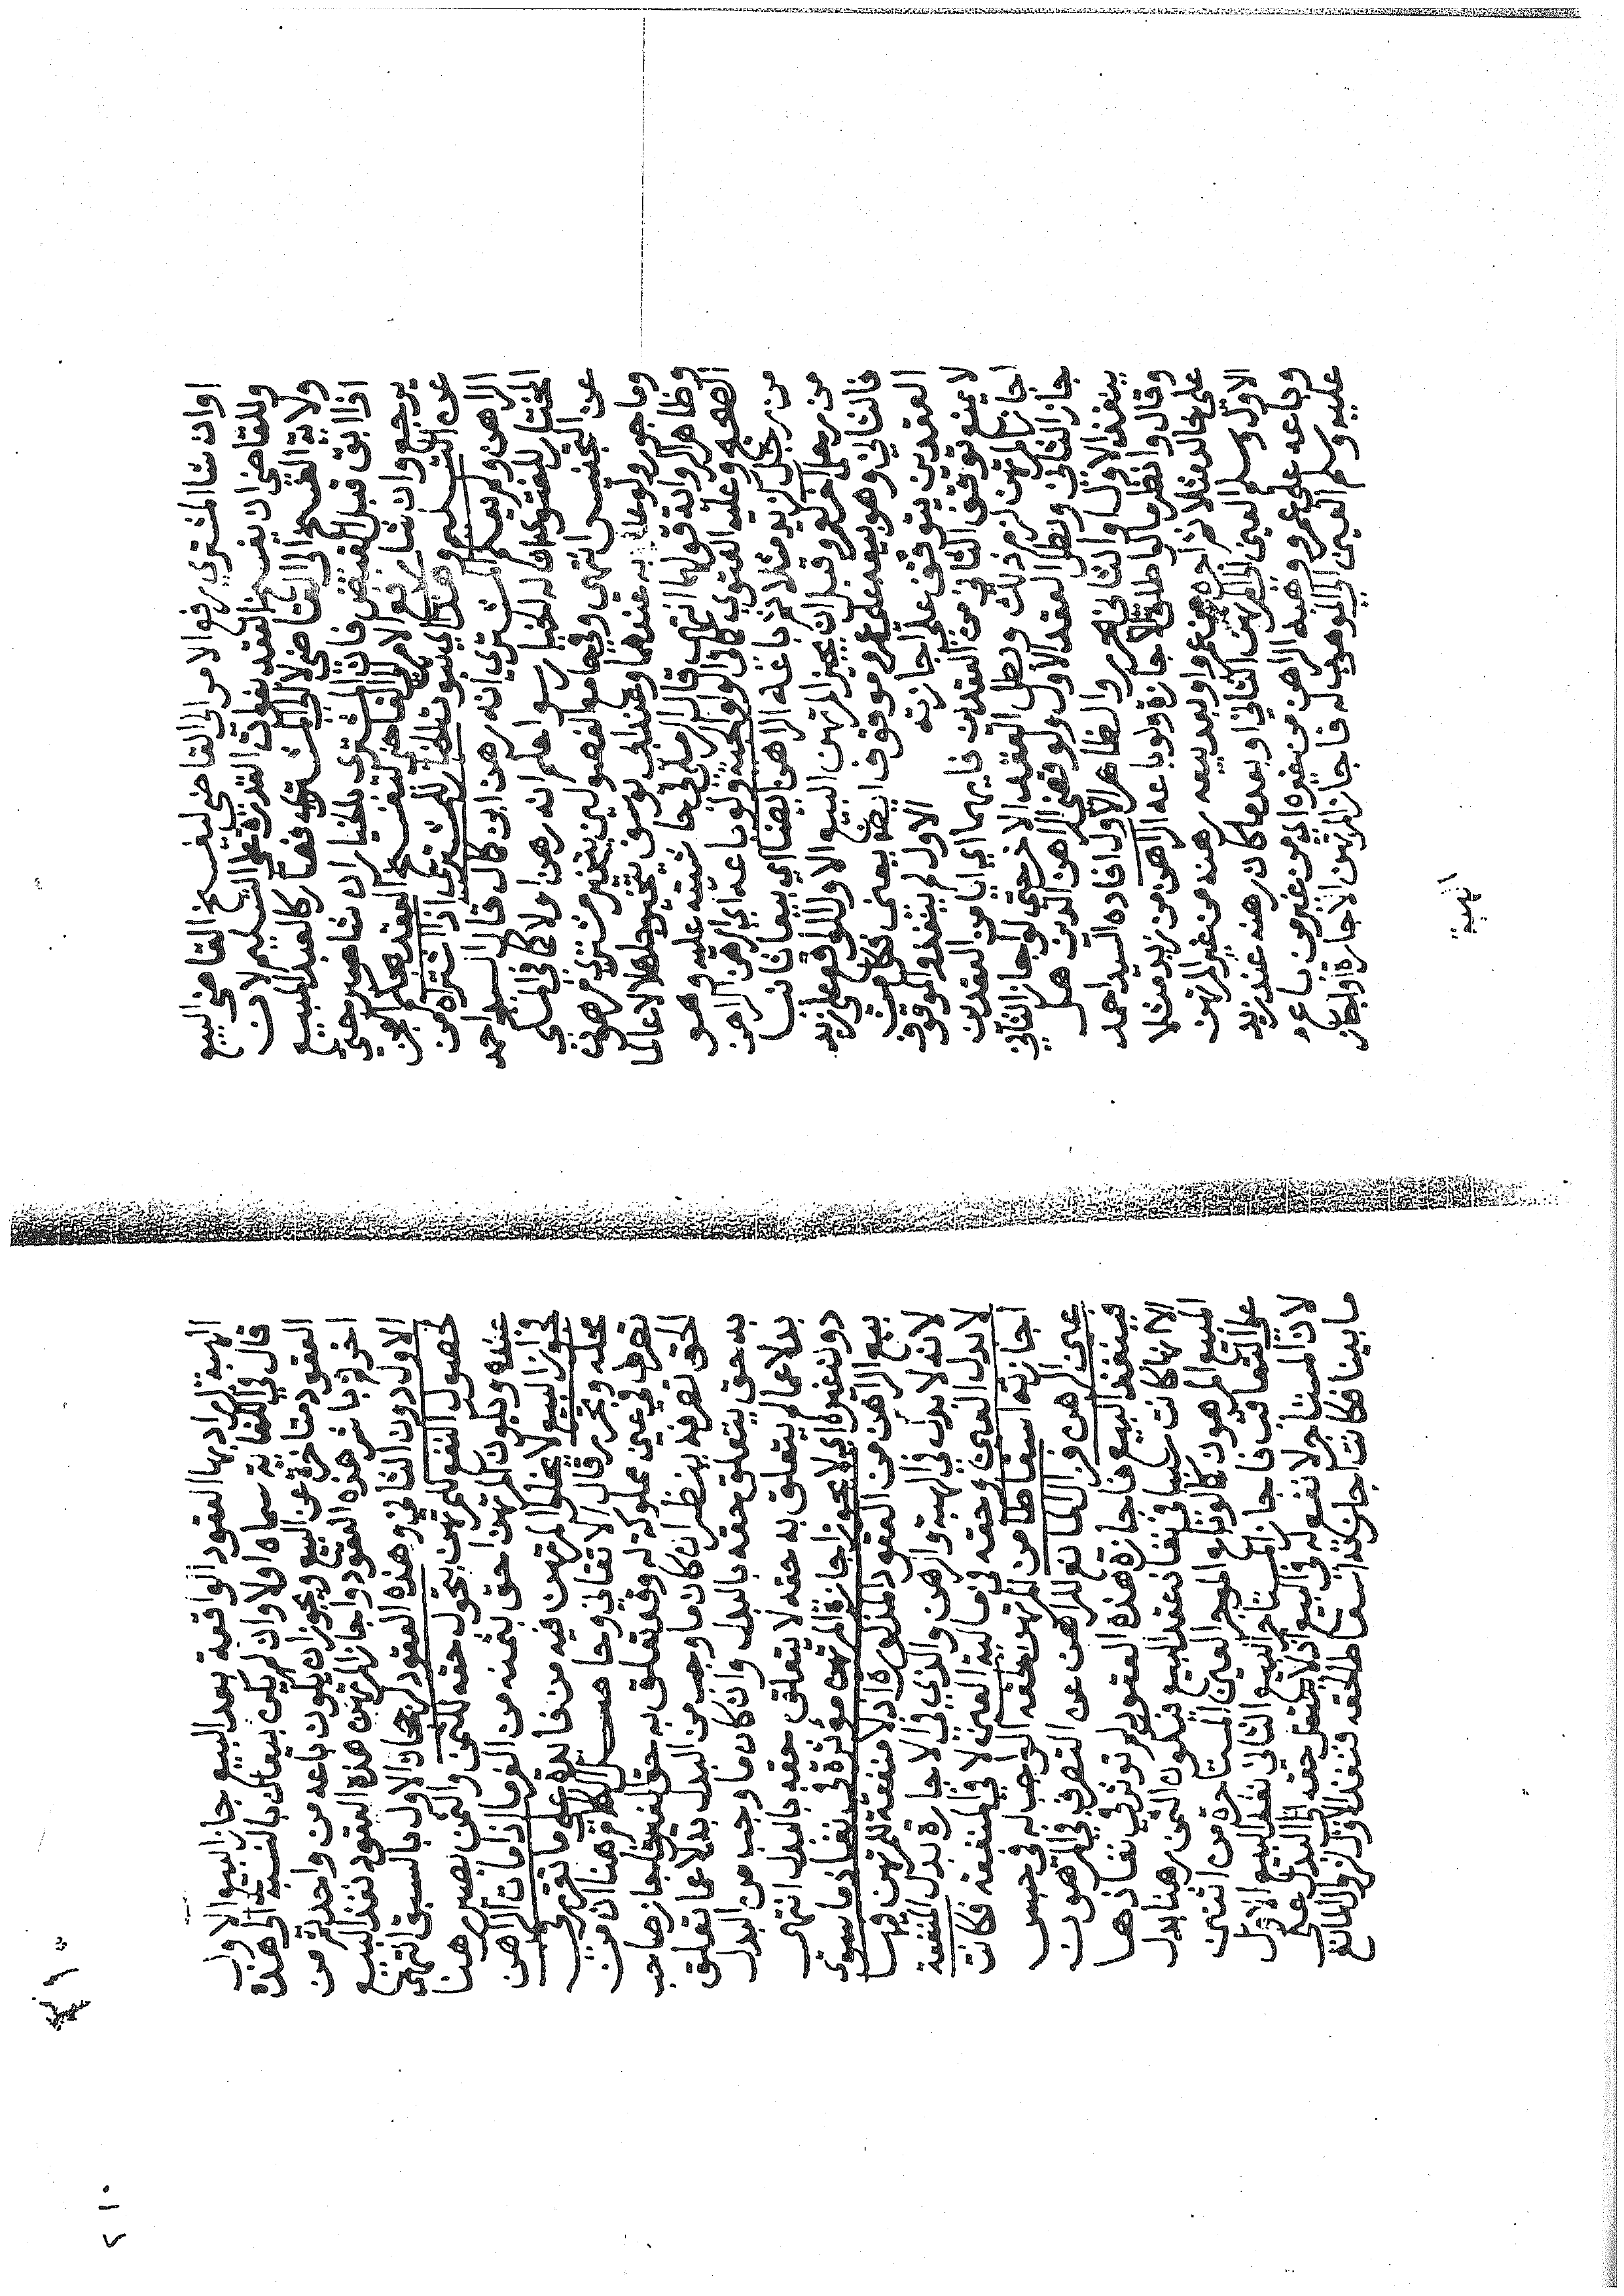 اوان شا المشتري يرفع الامر الى القاضي ليفسخ القاضي البيع
وللقاضي ان يفسخ العقد بفوات القدرة على التسليم لان
ولاية الفسخ الى القاضي لا الى المشتري فصار كالعبد المبيع
اذا ابق قبل القبض فان المشتري بالخيار ان شا صبر حتى
يرجع وان شا رفع الامر للقاضي ليفسخ العقد بحكم العجز
عن التسليم وهذا اي ثبوت الخيار للمشتري اذا اشتراه من
الراهن ولم يعلم المشتري انه رهن ابن كمال قال السيد احمد
المختار للفتوى ان له الخيار سوا علم انه رهن اولا كما في الحلبي
عن التجنيس انتهى وفي جامع الفصولين يتخير مشتري مرهون
وماجور ولو عالما به عندهما وعند ابي يوسف يتخير جاهلا لا عالما
وظاهر الرواية قولهما انتهى قال الرملي في حاشيته عليه وهو
الصحيح وعليه الفتوي كما في الولوالجية ولو باعه اي الرهن الراهن
من رجل كزيد مثلا ثم باعه الراهن ايضا اي بيعا ثانيا
من رجل اخر كعمرو قبل ان يجيز المرتهن البيع الاول الواقع على زيد
فالثاني وهو بيعه على عمرو موقوف ايضا يعني فكل من
العقدين يتوقف على اجازته الاول لم ينفذ والموقوف
لا يمنع توقف الثاني من العقدين فايهما اي ايا من العقدين
اجاز المرتهن لزم ذلك وبطل العقد الاخر حتى لو اجاز الثاني
جاز الثاني وبطل العقد الاول ولو قضى الراهن الدين هل
ينفذ الاول او الثاني يحرر والظاهر الاول افاده السيد احمد
وقال وانظر ما لو اطلق الاجازة ولو باعه الراهن من زيد مثلا
على خالد مثلا ثم اجره من عمرو او بعد بيعه رهنه من غير المرتهن
الاول وسلم العين الى المرتهن الثاني او بعد ما كان رهنه عند زيد
وباعه على عمرو وهبه الراهن من غيره اي من غير من باع
عليه وسلم العين الى الموهوب له فاجاز المرتهن الاجارة او اجاز
الهبة
الهبة المراد بها العقود الواقعة بعد البيع جاز البيع الاول
قال في الكفاية سماه اولا وان لم يكن بيعان بالنسبة الى هذه
العقود متاخرة عن البيع ويجوز ان يكون باعه من واحد ثم من
اخر ثم باشر هذه العقود واجاز المرتهن هذه العقود نفذ البيع
الاول دون الثاني وهذه العقود رجحان الاول بالسبق انتهى
لحصول النفع للمرتهن بتحول حقه للثمن والثمن يصير رهنا
عنده ويكون المرتهن احق بثمنه من الغرما اذا مات الراهن
فجواز البيع لا يخلو المرتهن فيه من فايدة على ما تقرر في
محله وتحرر قال الاتقاني وحاصل الكلام هنا ان من
تصرف في عين مملوكة له وقد تعلق به حق الغير فاجاز صاحب
الحق تصرفه ينظر ان كان ما وجب من البدل بدلا عما تعلق
به حق يتعلق حقه بالبدل وان كان ما وجب من البدل
بدلا عما لم يتعلق به حقه لا يتعلق حقه بالبدل انتهى
دون غيره اي لا يجوز اجازة المرتهن مؤثرة في نفاذ ما سوى
بيع الراهن من العقود المذكورة اذ لا منفعة للمرتهن فيها
لانه لا بدل في الهبة والرهن والذي في الاجارة بدل المنفعة
لا بدل العين وحقه في مالية العين لا في المنفعة فكانت
اجازته اسقاطا من المرتهن لحقه الواجب له في حبس
عين الرهن فزال المانع للراهن عن التصرف في المرهون
فينفذ البيع فاجازة هذه العقود لم توثر في نفاذها
الا انها كانت سببا في نفاذ عقد البيع فيكون الثمن رهنا بدل
المبيع المرهون كما لو باع الموجر العين المستاجرة من اثنين
على التعاقب فاجاز المستاجر البيع الثاني نفذ البيع الاول
لان المستاجر لا نفع له في البيع اذ لا ينتقل حقه الى البدل على
ما بينا فكانت اجازته اسقاطا لحقه فنفذ الاول لزوال المانع